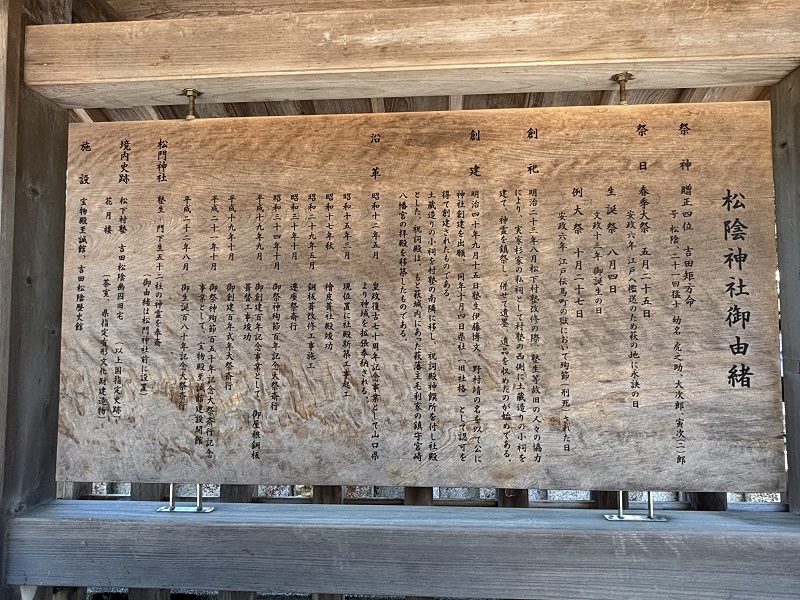 松陰神社御由緒
祭神 贈正四位 吉田矩方命
号 松陰・二十一回猛士 幼名 虎之助、大次郎、寅次(二)郎
祭日 春季大祭 五月二十五日
安政六年、江戸へ檻送のため萩の地に永訣の日
生誕祭 八月四日
文政十三年、御誕生の日
例大祭 十月二十七日
安政六年、江戸伝馬町の獄において殉節(刑死)された日
創祀 明治二十三年八月松下村塾改修の際、塾生等故旧の人々の協力
により、実家杉家の私祠として村塾の西側に土蔵造りの小祠を
建て、神霊を鎮祭し、併せて遺墨、遺品を収めたのが始めである。
創建 明治四十年九月十五日塾生伊藤博文、野村靖の名を以て公に
神社創建を出願、同年十月四日県社(旧社格)として認可を
得て創建されたものである。
土蔵造りの小祠を村塾の南隣に移し、祝詞殿神饌所を付し社殿
とした。祝詞殿は、もと萩城内にあった萩藩主毛利家の鎮守宮崎
八幡宮の拝殿を移築したものである。
沿革 昭和十二年五月 皇政復古七十周年記念事業として山口県
より神域を拡張奉納される。
昭和十五年三月 現位置に社殿新築工事起工
昭和十七年秋 檜皮葺社殿竣功
昭和二十九年五月 銅板葺改修工事施工
昭和三十年十月 遷座祭斎行
昭和三十四年十月 御祭神殉節百年記念大祭斎行
平成十九年九月 御創建百年記念事業として、御屋根銅板
葺替工事竣功
平成十九年十月 御創建百年式年大祭斎行
平成二十一年十月 御祭神殉節百五十年記念大祭斎行記念
事業として、宝物殿至誠館建設開館
平成二十二年八月 御生誕百八十年記念大祭斎行
松門神社 塾生・門下生五十二柱の神霊を奉斎
(御由緒は松門神社前に設置)
境内史跡 松下村塾 吉田松陰幽囚旧宅 (以上国指定史跡)
花月楼 (茶室、県指定有形文化財建造物)
施設 宝物殿至誠館、吉田松陰歴史館